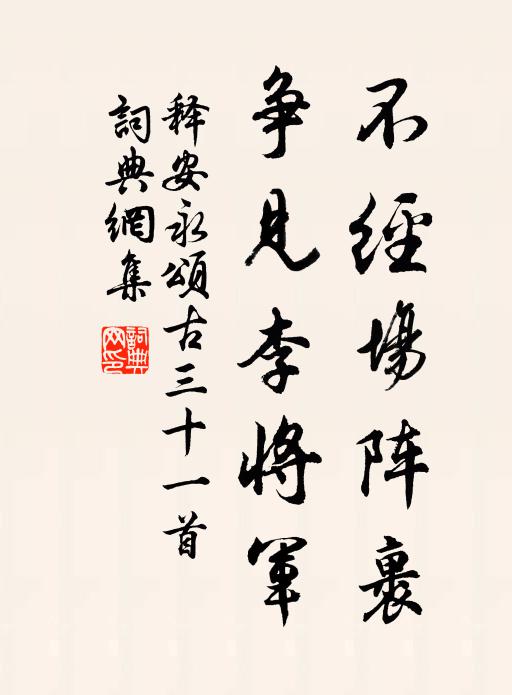 不經場阵裹
争見李将軍
释安永頌古三十一首
詞典網集
詞典网印